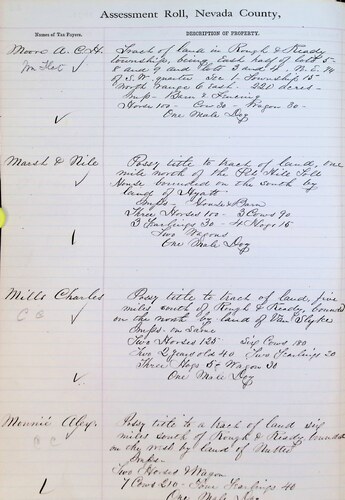 Assessment Roll, Nevada County,
Names of Tax Payers.
DESCRIPTION OF PROPERTY.
Moore A. C. H.
Tract of land in Rough & Ready
township, being East half of lots 5-
8 and 9 and lots 3 and 4 - N.E. 1/4
of S.W. quarter Sec 1 Township 15
North range 6 East. 220 acres -
Imps - Barn & Fencing
Horse 100 - Cow 30 - Wagon 30 -
One Male Dog
Marsh & Nile
Possy title to tract of land, one
mile north of the Toll
House bounded on the south by
land of Hyatt -
Imps - House & Barn
Three Horses 100 - 3 Cows 90
3 Yearlings 30 - 4 Hogs 15
Two Wagons
One Male Dog
Mills Charles
Possy title to tract of land, five
miles south of Rough & Ready, bounded
on the north by land of Van Slyke
Imps on Same
Two Horses 125 Six Cows 180
Two 2 years old 40 Two Yearlings 20
Three Hogs 5 & Wagon 30
One Male Dog
C C
Possy title to a tract of land six
miles south of Rough & Ready bounded
on the west by land of
Imps -
Two Horses & Wagon
7 Cows 210 - Four Yearlings 40
One Male Dog